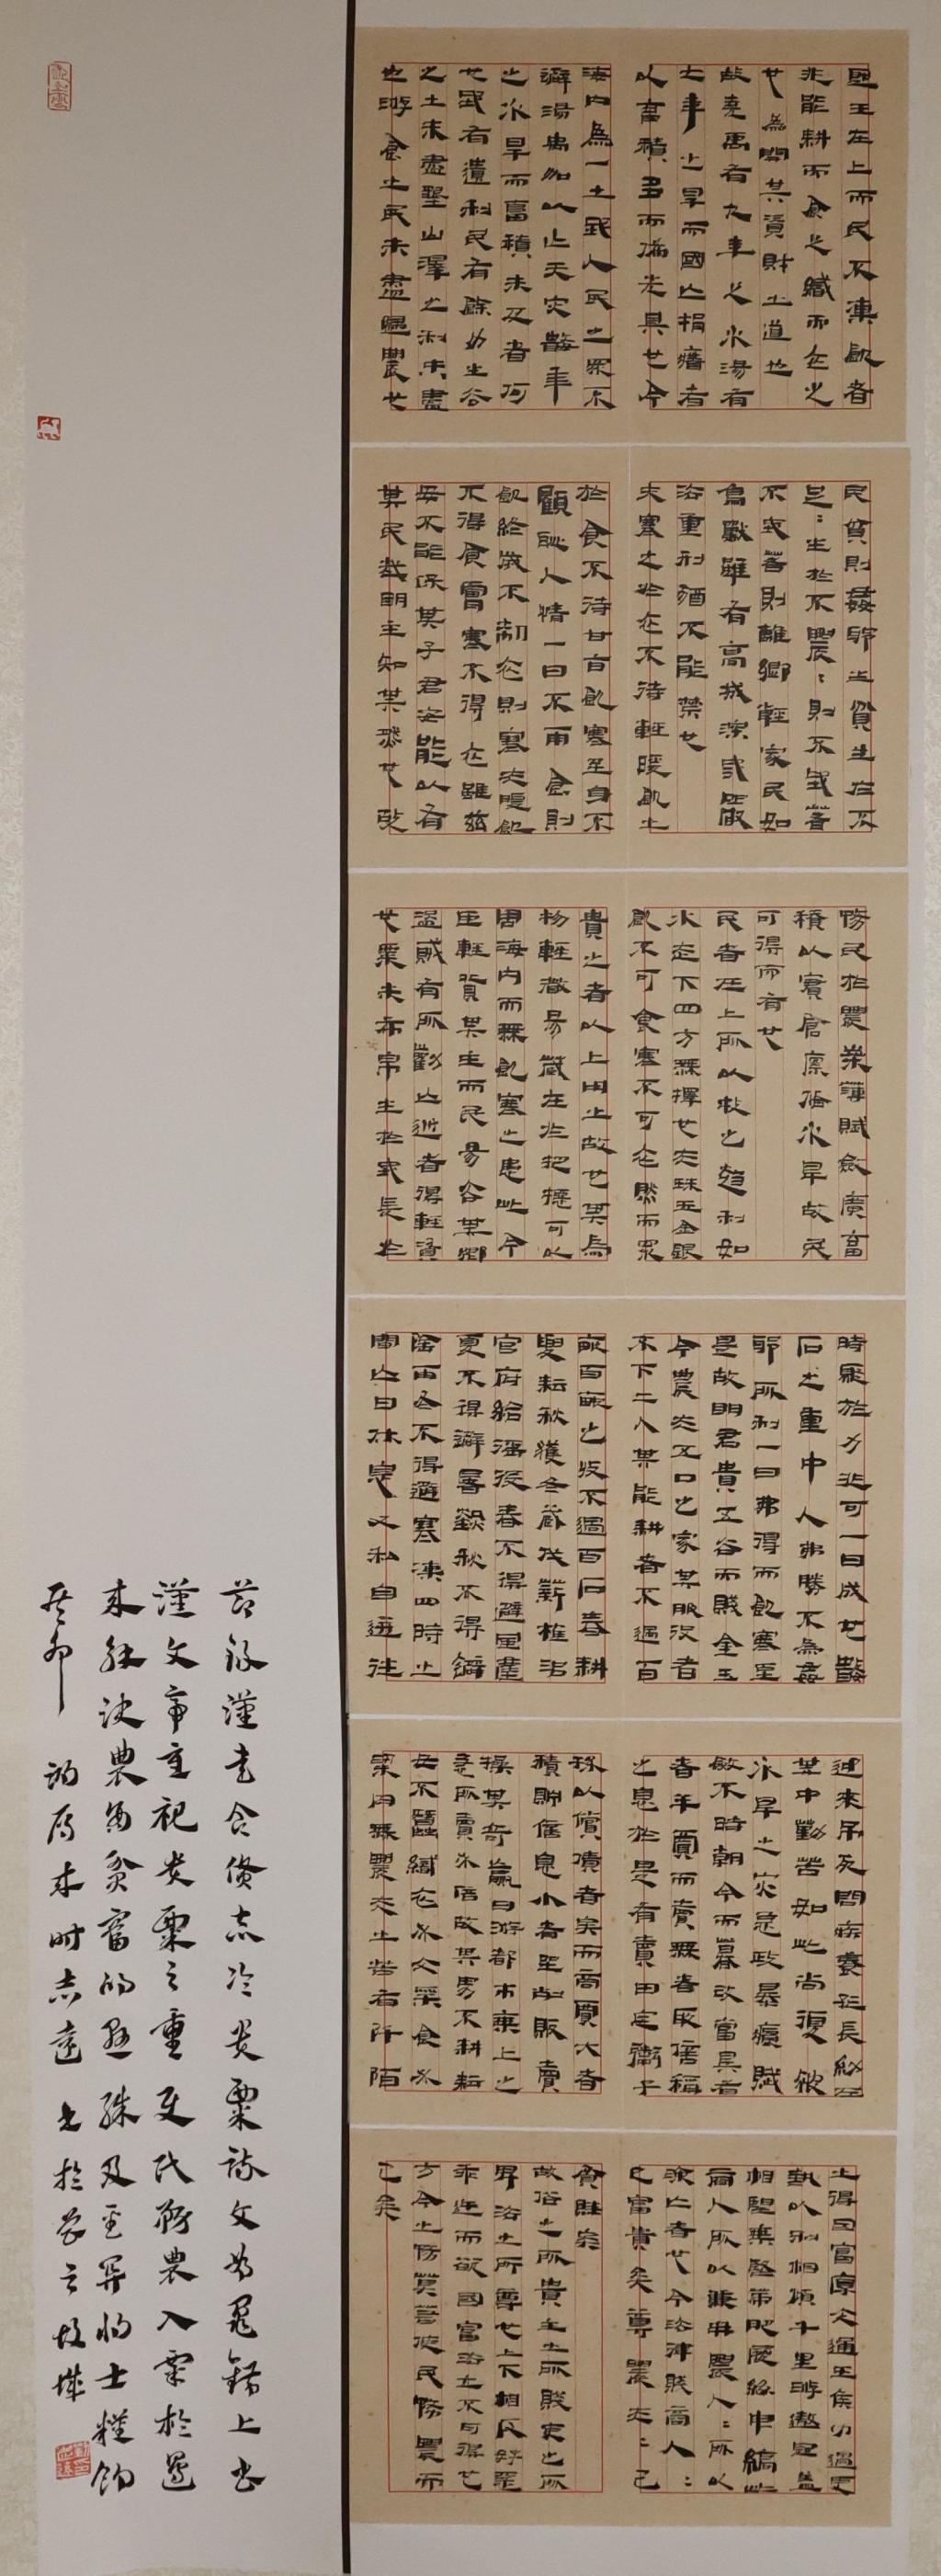 聖王在上而民不凍飢者
非能耕而食之織而衣之
也為開其資財之道也
故堯禹有九年之水湯有
七年之旱而國亡捐瘠者
以畜積多而備先具也今
海内為一土地人民之眾不
避湯禹加以亡天災數年
之水旱而畜積未及者何
也地有遺利民有餘力生谷
之土未盡墾山澤之利未盡
出游食之民未盡歸農也
民貧則姦邪生貧生於不
足：生於不農：則不地著
不地著則離鄉輕家民如
鳥獸雖有高城深池嚴
法重刑猶不能禁也
夫寒之於衣不待輕暖飢之
於食不待甘旨飢寒至身不
顧恥人情一日不再食則
飢終歲不制衣則寒夫腹飢
不得食膚寒不得衣雖慈
母不能保其子君安能以有
其民哉明主知其然也故
務民於農桑薄賦斂廣畜
積以實倉廩備水旱故民
可得而有也
民者在上所以牧之趨利如
水走下四方無擇也夫珠玉金銀
飢不可食寒不可衣然而眾
貴之者以上用之故也其為
物輕微易藏在於把握可以
周海内而無飢寒之患此令
臣輕背其主而民易去其鄉
盜賊有所勸亡逃者得輕資
也粟米布帛生於地長於
時聚於力非可一日成也數
石之重中人弗勝不為姦
邪所利一日弗得而飢寒至
是故明君貴五谷而賤金玉
今農夫五口之家其服役者
不下二人其能耕者不過百
畝百畝之收不過百石春耕
夏耘秋獲冬藏伐薪樵治
官府給徭役春不得避風塵
夏不得避暑熱秋不得避
陰雨冬不得避寒凍四時之
間亡日休息又私自送往
迎來弔死問疾養孤長幼在
其中勤苦如此尚復被
水旱之災急政暴虐賦
斂不時朝令而暮改當具有
者半賈而賣無者取倍稱
之息於是有賣田宅鬻子
孫以償債者矣而商賈大者
積貯倍息小者坐列販賣
操其奇贏日游都市乘上之
急所賣必倍故其男不耕耘
女不蠶織衣必文采食必
粱肉無農夫之苦有阡陌
之得因富厚交通王侯力過吏
勢以利相傾千里游遨冠蓋
相望乘堅策肥履絲曳縞此
商人所以兼并農人：所以
流亡者也今法律賤商人：
已富貴矣尊農夫：已
貧賤矣
故俗之所貴主之所賤吏之所
卑法之所尊也上下相反好惡
乖迕而欲國富法立不可得也
方今之務莫若使民務農而
已矣
節錄漢書食貨志論貴粟疏文為晁錯上書
漢文帝重視貴粟之重要民務農入粟於邊
未能決農商貧富的懸殊及至